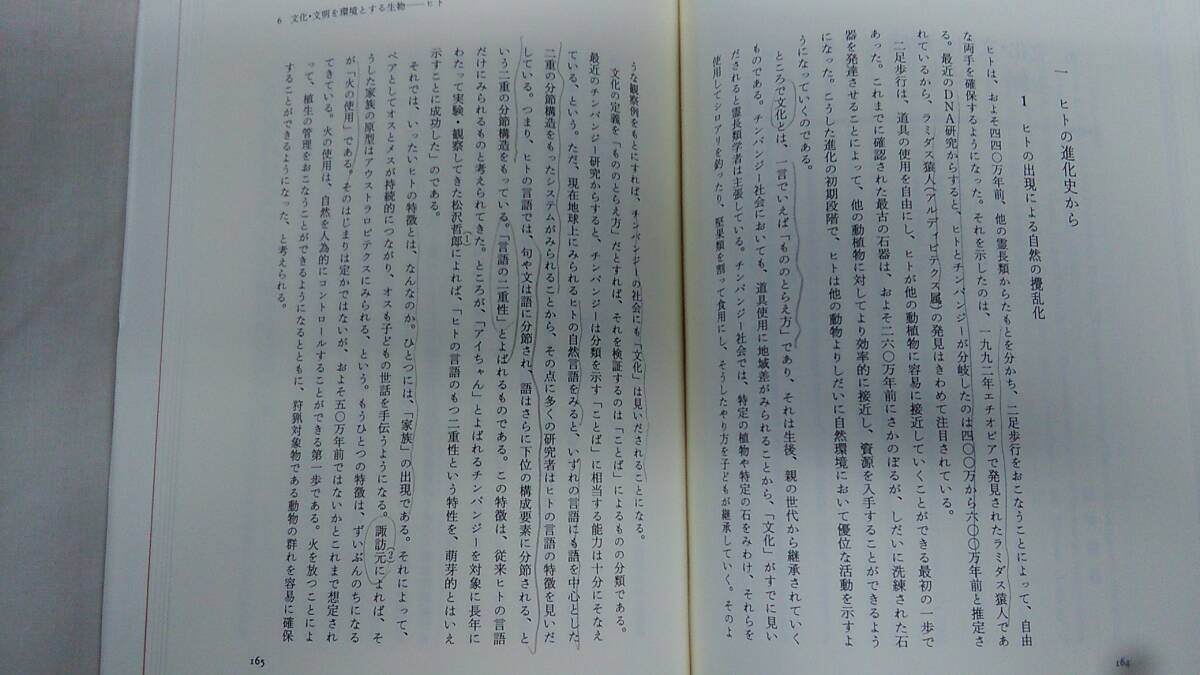 一　ヒトの進化史から
1　ヒトの出現による自然の攪乱化
ヒトは、およそ四四〇万年前、他の霊長類からたもとを分かち、二足歩行をおこなうことによって、自由
な両手を確保するようになった。それを示したのは、一九九二年エチオピアで発見されたラミダス猿人であ
る。最近のDNA研究からすると、ヒトとチンパンジーが分岐したのは四〇〇万から六〇〇万年前と推定さ
れているから、ラミダス猿人（アルディピテクス属）の発見はきわめて注目されている。
二足歩行は、道具の使用を自由にし、ヒトが他の動植物に容易に接近していくことができる最初の一歩で
あった。これまでに確認された最古の石器は、およそ二六〇万年前にさかのぼるが、しだいに洗練された石
器を発達させることによって、他の動植物に対してより効率的に接近し、資源を入手することができるよう
になった。こうした進化の初期段階で、ヒトは他の動物よりしだいに自然環境において優位な活動を示すよ
うになっていくのである。
ところで文化とは、一言でいえば「もののとらえ方」であり、それは生後、親の世代から継承されていく
ものである。チンパンジー社会においても、道具使用に地域差がみられることから、「文化」がすでに見い
だされると霊長類学者は主張している。チンパンジー社会では、特定の植物や特定の石をみわけ、それらを
使用してシロアリを釣ったり、堅果類を割って食用にし、そうしたやり方を子どもが継承していく。そのよ
164
6　文化・文明を環境とする生物――ヒト
うな観察例をもとにすれば、チンパンジーの社会にも「文化」は見いだされることになる。
文化の定義を「もののとらえ方」だとすれば、それを検証するのは「ことば」によるものの分類である。
最近のチンパンジー研究からすると、チンパンジーは分類を示す「ことば」に相当する能力は十分にそなえ
ている、という。ただ、現在地球上にみられるヒトの自然言語をみると、いずれの言語にも語を中心とした
二重の分節構造をもったシステムがみられることから、その点に多くの研究者はヒトの言語の特徴を見いだ
している。つまり、ヒトの言語では、句や文は語に分節され、語はさらに下位の構成要素に分節される、と
いう二重の分節構造をもっている。「言語の二重性」とよばれるものである。この特徴は、従来ヒトの言語
だけにみられるものと考えられてきた。ところが、「アイちゃん」とよばれるチンパンジーを対象に長年に
わたって実験・観察してきた松沢哲郎（1）によれば、「ヒトの言語のもつ二重性という特性を、萌芽的とはいえ
示すことに成功した」のである。
それでは、いったいヒトの特徴とは、なんなのか。ひとつには、「家族」の出現である。それによって、
ペアとしてオスとメスが持続的につながり、オスも子どもの世話を手伝うようになる。諏訪元（2）によれば、そ
うした家族の原型はアウストラロピテクスにみられる、という。もうひとつの特徴は、ずいぶんのちになる
が「火の使用」である。そのはじまりは定かではないが、およそ五〇万年前ではないかとこれまで想定され
てきている。火の使用は、自然を人為的にコントロールすることができる第一歩である。火を放つことによ
って、植生の管理をおこなうことができるようになるとともに、狩猟対象物である動物の群れを容易に確保
することができるようになった、と考えられる。
165